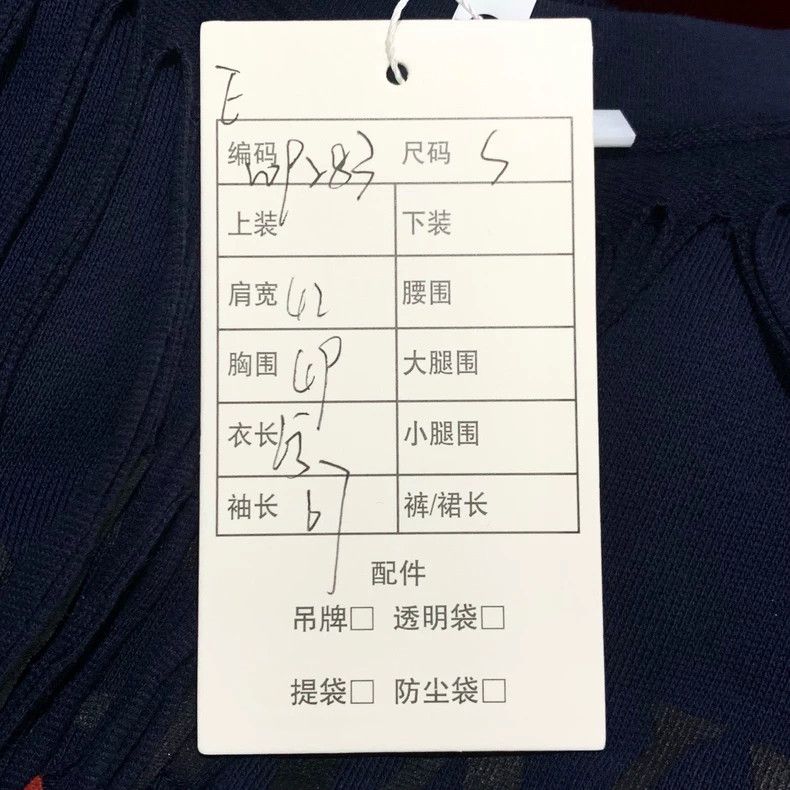 E
编码 尺码 S
上装 下装
肩宽 42 腰围
胸围 49 大腿围
衣长 53 小腿围
袖长 67 裤/裙长
配件
吊牌□ 透明袋□
提袋□ 防尘袋□